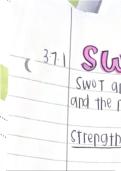 3.7.1 SW
SWOT an
and the
Strength